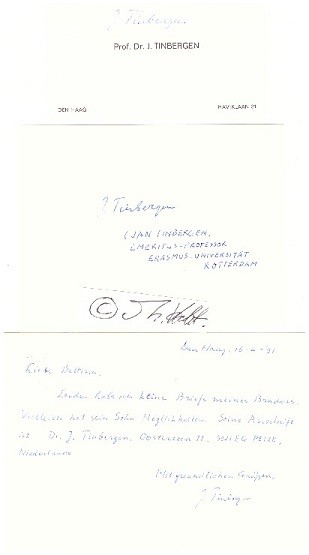 J. Tinbergen
Prof. Dr. J. TINBERGEN
DEN HAAG HAVIKLAAN 31
J. Tinbergen
(JAN TINBERGEN,
EMERITUS-PROFESSOR
ERASMUS-UNIVERSITÄT
ROTTERDAM
©
Den Haag, 16-4-'91
Liebe Bettina,
Leider habe ich keine Briefe meines Bruders.
Vielleicht hat sein Sohn Möglichkeiten. Seine Anschrift
ist Dr. J. Tinbergen,
Niederlande
Mit freundlichen Grüssen,
J. Tinbergen